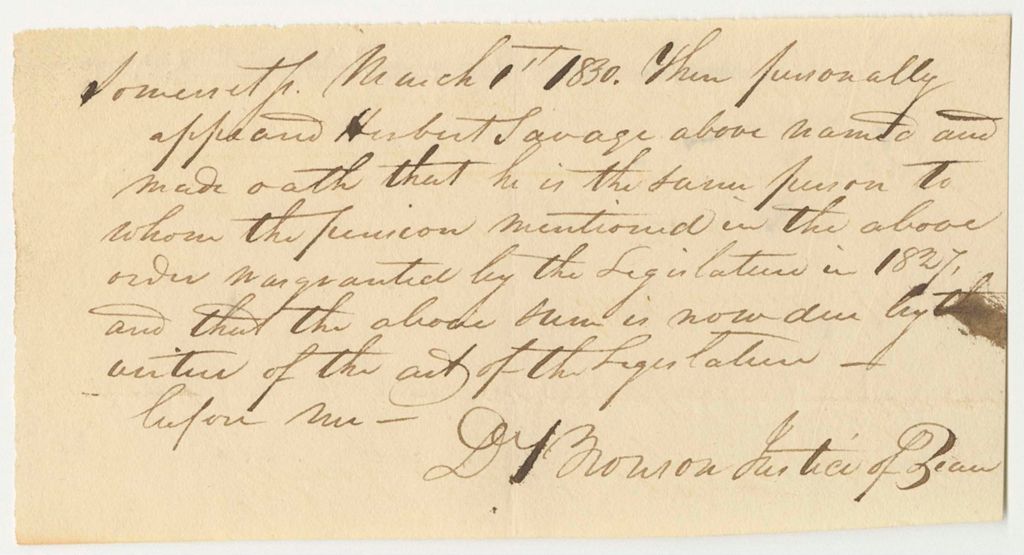 Somerset ss. March 1st 1830. Then personally
appeared Herbert Savage above named and
made oath that he is the same person to
whom the pension mentioned in the above
order was granted by the Legislature in 1827,
and that the above sum is now due by th
virtue of the act of the Legislature —
before me —
D Bronson Justice of Peace